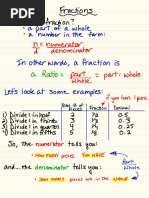 Fractions
fraction?
• a part of a whole
• a number in the form:
n = numerator
d denominator
In other words, a fraction is
a Ratio = part = part : whole
whole
Let's look at some examples:
if you have 1 piece
Total # of Pieces
Fraction
Decimal
1) Divide 1 in half
2
0.5
2) Divide 1 in thirds
3
3) Divide 1 in quarters
4
4) Divide 1 in fifths
5
So, the numerator tells you:
• How many pieces You HAVE
and....the denominator tells you:
• How many pieces are in the whole
Part
Whole